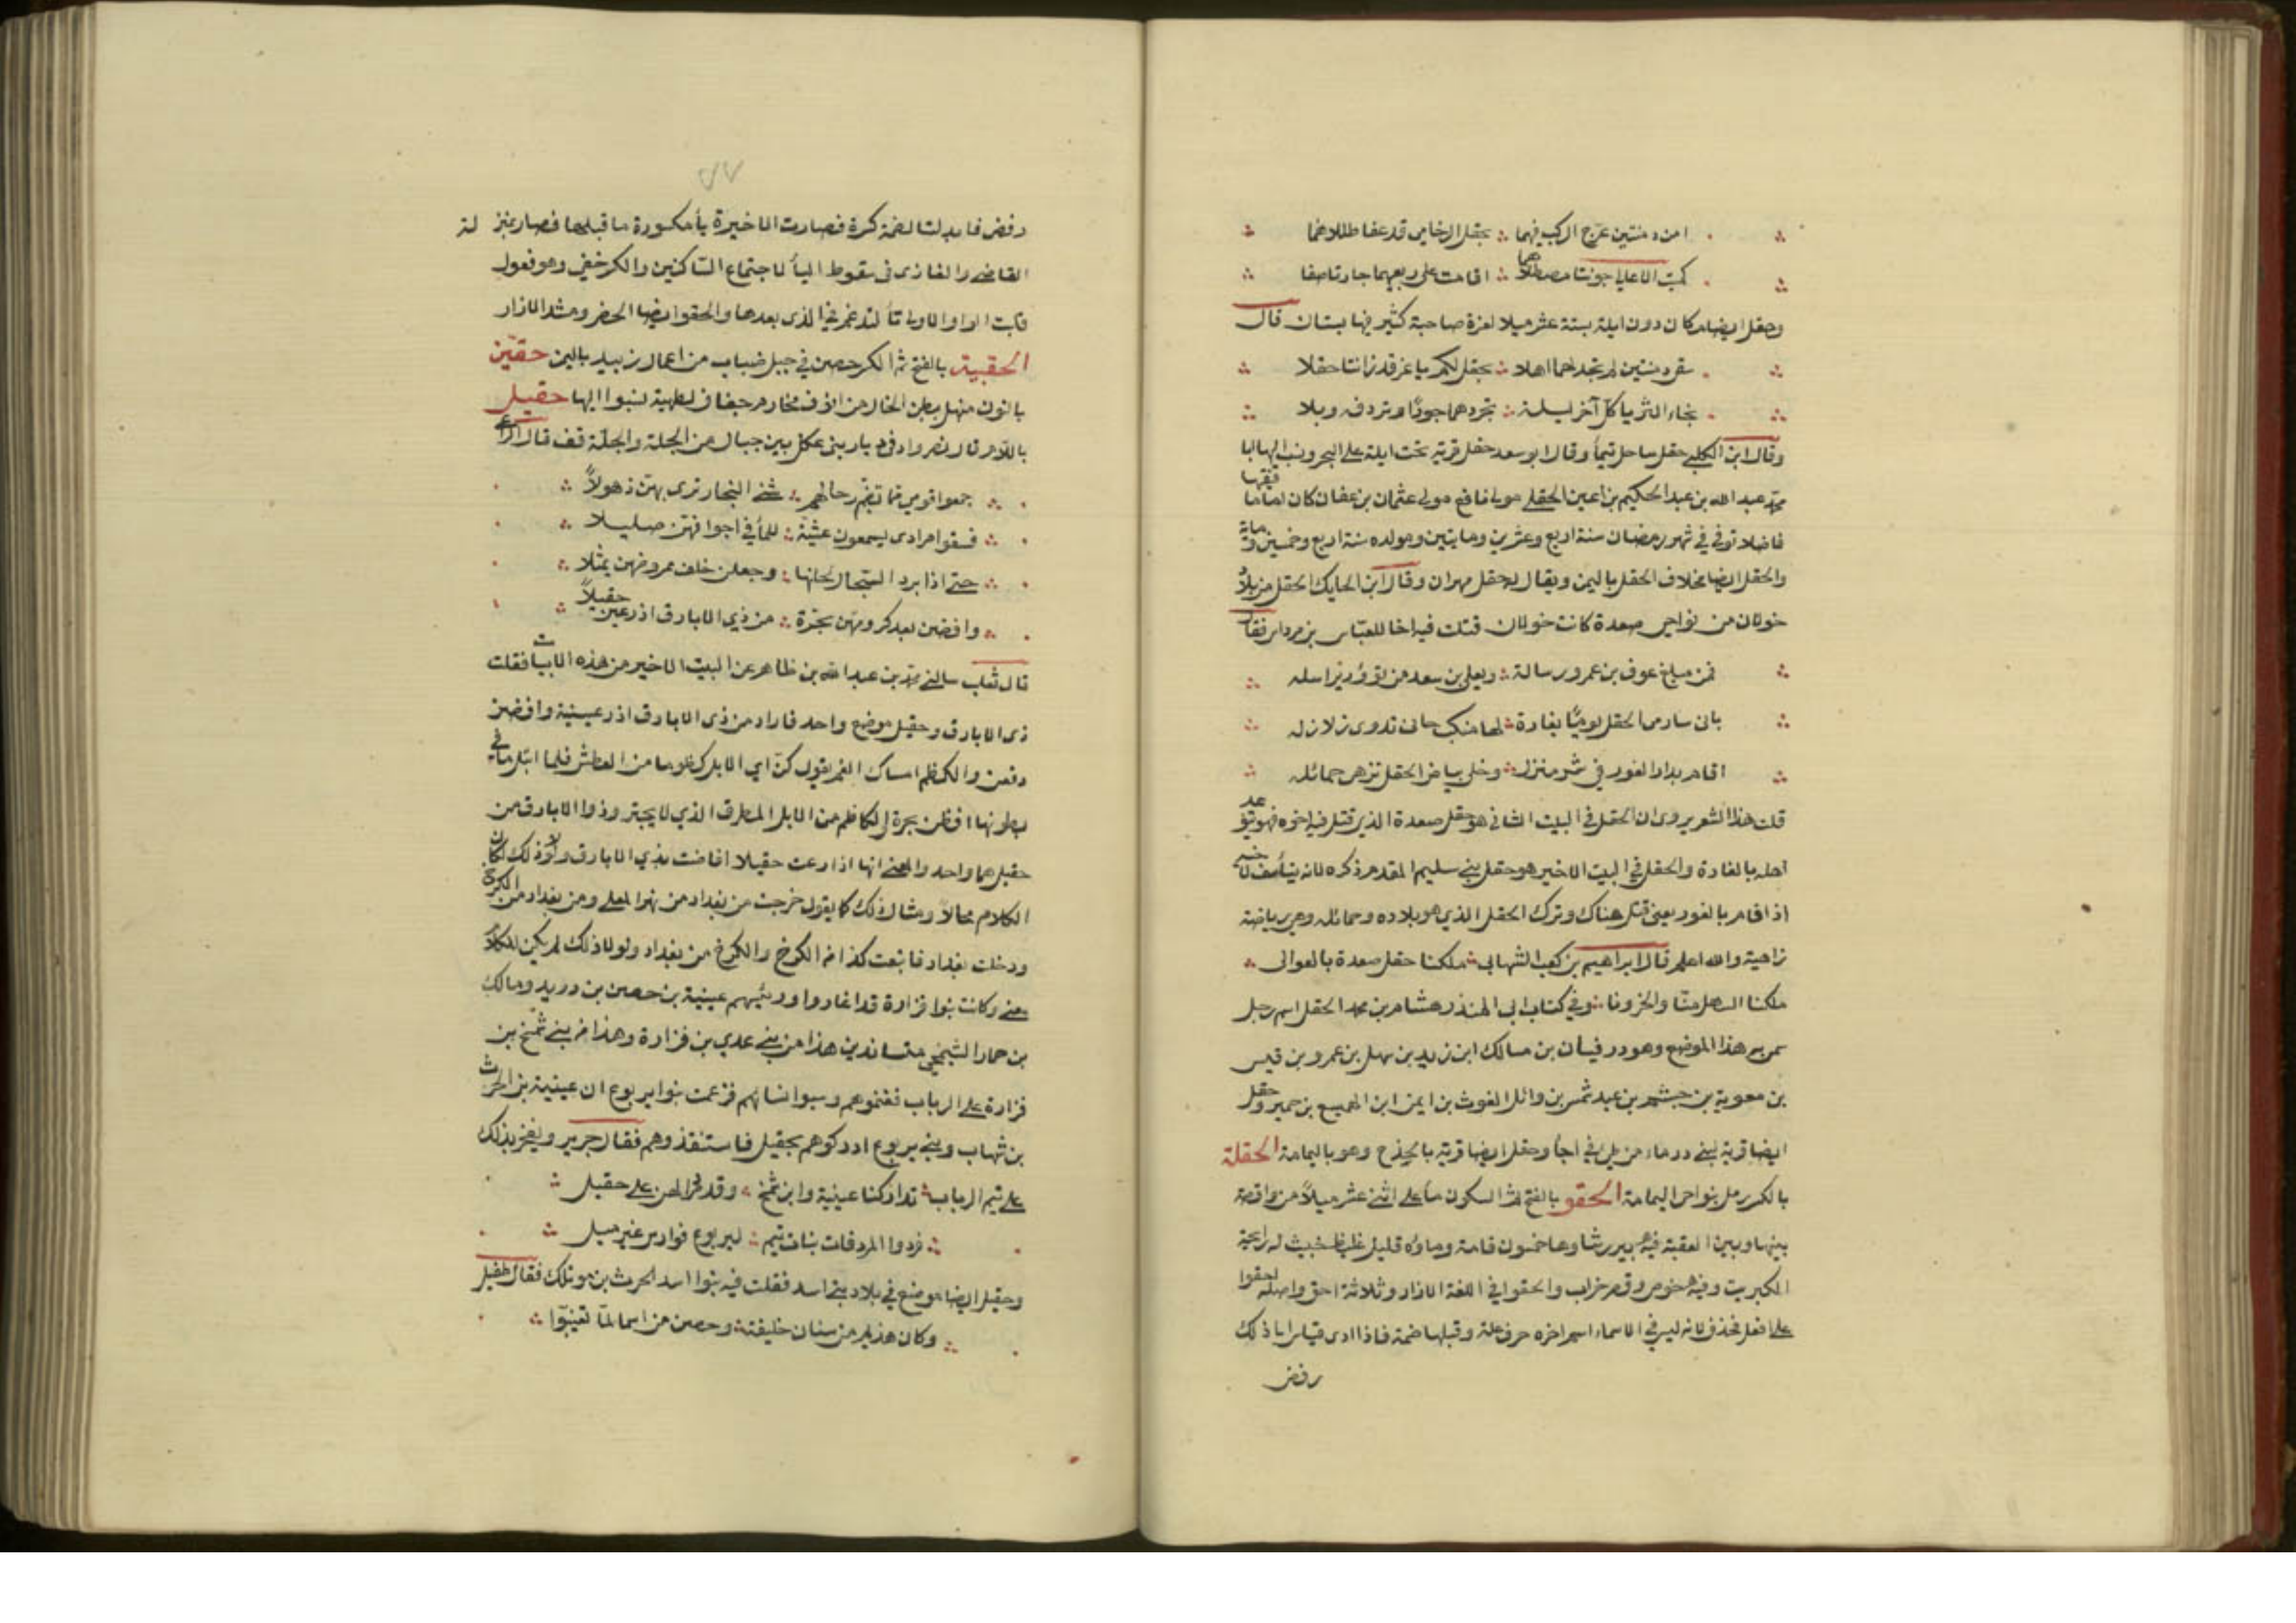 امن دمنتين عرج الركب فيهما ∴ بحقل الرخامى قد عفا طللاهما
كميت الاعالي جونتا مصطلاهما ∴ اقامت على ربعيهما جارتا صفا
وحقل ايضا مكان دون ايلة بستة عشر ميلا لعزة صاحبة كثير فيها بستان قال
سقى دمنتين لم نجد لهما اهلا ∴ بحقل لكم يا عز قد زانتا حقلا
نجاء الثريا كل آخر ليلة ∴ تجودهما جودًا وتردف وبلا
وقال ابن الكلبي حقل ساحل تيمأ وقال ابو سعد حقل قرية تحت ايلة على البحر ونسب اليها ابا
محمد عبد الله بن عبد الحكيم بن اعين الحقلي مولى نافع مولى عثمان بن عفان كان اماما فقيها
فاضلا توفي في شهر رمضان سنة اربع وعشرين ومايتين ومولده سنة اربع وخمسين وماية
والحقل ايضا مخلاف الحقل باليمن ويقال له حقل مهران وقال ابن الحايك الحقل من بلاد
خولان من نواحي صعدة كانت خولان قتلت فيه اخا للعباس بن مرداس فقال
فمن مبلغ عوف بن عمرو رسالة ∴ ويعلى بن سعد من يراسله
بانى سارمى الحقل يوميًا بغارة ∴ لها منكب حانى تدوى زلازله
اقام بدار الغور في شر منزل ∴ وخلى بياض الحقل تزهى حمائله
قلت هذا الشعر يروى ان الحقل في البيت الثاني هو حقل صعدة الذي قتل فيه اخوه فهو يتوعد
اهله بالغارة والحقل في البيت الاخير هو حقل بني سليم المقدم ذكره لانه يتأسف لاخيه
اذ اقام بالغور يعني قتل هناك وترك الحقل الذي هو بلاده وحمائله وهي رياضة
زاهية والله اعلم قال ابراهيم بن كعب الشهابي ∴ ملكنا حقل صعدة بالعوالى ∴
ملكنا السهل منا والحزونا ∴ وفي كتاب ابى المنذر هشام بن محمد الحقل اسم رجل
سمى به هذا الموضع وهو ذو قينان بن مالك ابن زيد بن سهل بن عمرو بن قيس
بن معوية بن جشم بن عبد شمس بن وائل الغوث بن ايمن ابن الهميسع بن حمير وحقل
ايضا قرية لبني درماء من طي في اجأ وحقل ايضا قرية بالخرج وهو باليمامة الحقلة
بالكسر رمل بنواحى اليمامة الحقو بالفتح ثم السكون مأ على اثنى عشر ميلاً من واقصة
بينها وبين العقبة فيه بير رشاوها خمسون قامة وماؤه قليل غليظ خبيث له رايحة
الكبريت وفيه حوض وقصر خراب والحقوا في اللغة الازار وثلاثة احق واصله احقوا
على افعل فحذف لانه ليس في الاسماء اسم اخره حرف علة وقبلها ضمة فاذا ادى قياس الى ذلك
رفض
رفض فابدلت الضمة كسرة فصارت الاخيرة يأ مكسورة ما قبلها فصار بمنزلة
القاضى والغازى في سقوط اليأ لاجتماع الساكنين والكثير حقي وهو فعول
قلبت الواو الاولى تأ لتدغم في الذي بعدها والحقو ايضا الخصر ومشد الازار
الحقيبة بالفتح ثم الكسر حصن في جبل ضباب من اعمال زبيد باليمن حقين
بالنون منهل ببطن الخال من انوف مخارم جفاف لطهية نسبوا اليها حقيل
باللام قال نصر واد في ديار بنى عكل بين جبال من الحلة والحلة قف قال الراعي
جمعوا قوي مما تضم رحالهم ∴ شتى النجار ترى بهن ذهولاً ∴
فسقوا صوادى يسمعون عشية ∴ للمأ في اجوافهن صليلا ∴
حتى اذا برد السجال لهاثها ∴ وجعلن خلف عروضهن ثميلا ∴
وافضن بعد كرومهن بجرة ∴ من ذي الابارق اذ رعين حقيلاً ∴
قال ثعلب سالني محمد بن عبد الله بن طاهر عن البيت الاخير من هذه الابيات فقلت
ذى الابارق وحقيل موضع واحد فاراد من ذى الابارق اذ رعينه وافضن
دفعن والكظم امساك الفم يقول كن اي الابل كظوما من العطش فلما ابتل ما في
بطونها افضن بجرة الكاظم من الابل المطرق الذي لا يجتر وذو الابارق من
حقيل هما واحد والمعنى انها اذا رعت حقيلا افاضت بذي الابارق ولولا ذلك لكان
الكلام محالاً ومثال ذلك كما يقول خرجت من بغداد من نهر المعلى ومن بغداد من الكرخ
ودخلت بغداد فابتعت كذا من الكرخ والكرخ من بغداد ولولا ذلك لم يكن للكلام
معنى وكانت بنوا فزارة قد اغاروا ورئيسهم عيينة بن حصن بن دريد ومالك
بن حمار الشمخي متساندين هذا من بني عدي بن فزارة وهذا من بني شمخ بن
فزارة على الرباب فغنموهم وسبوا نسائهم فزعمت بنوا يربوع ان عيينة بن الحرث
بن شهاب وبني يربوع ادركوهم بحقيل فاستنقذوهم فقال جرير ويفخر بذلك
على تيم الرباب ∴ تداركنا عيينة وابن شمخ ∴ وقد مرا بهن على حقيل ∴
فردوا المردفات بنات تيم ∴ ليربوع فوارس غير ميل ∴
وحقيل ايضا موضع في بلاد بني اسد فقلت فيه بنوا اسد الحرث بن مويلك فقال طفيل
وكان هذيم من سنان خليفة ∴ وحصن من اسما لما تغيبوا ∴